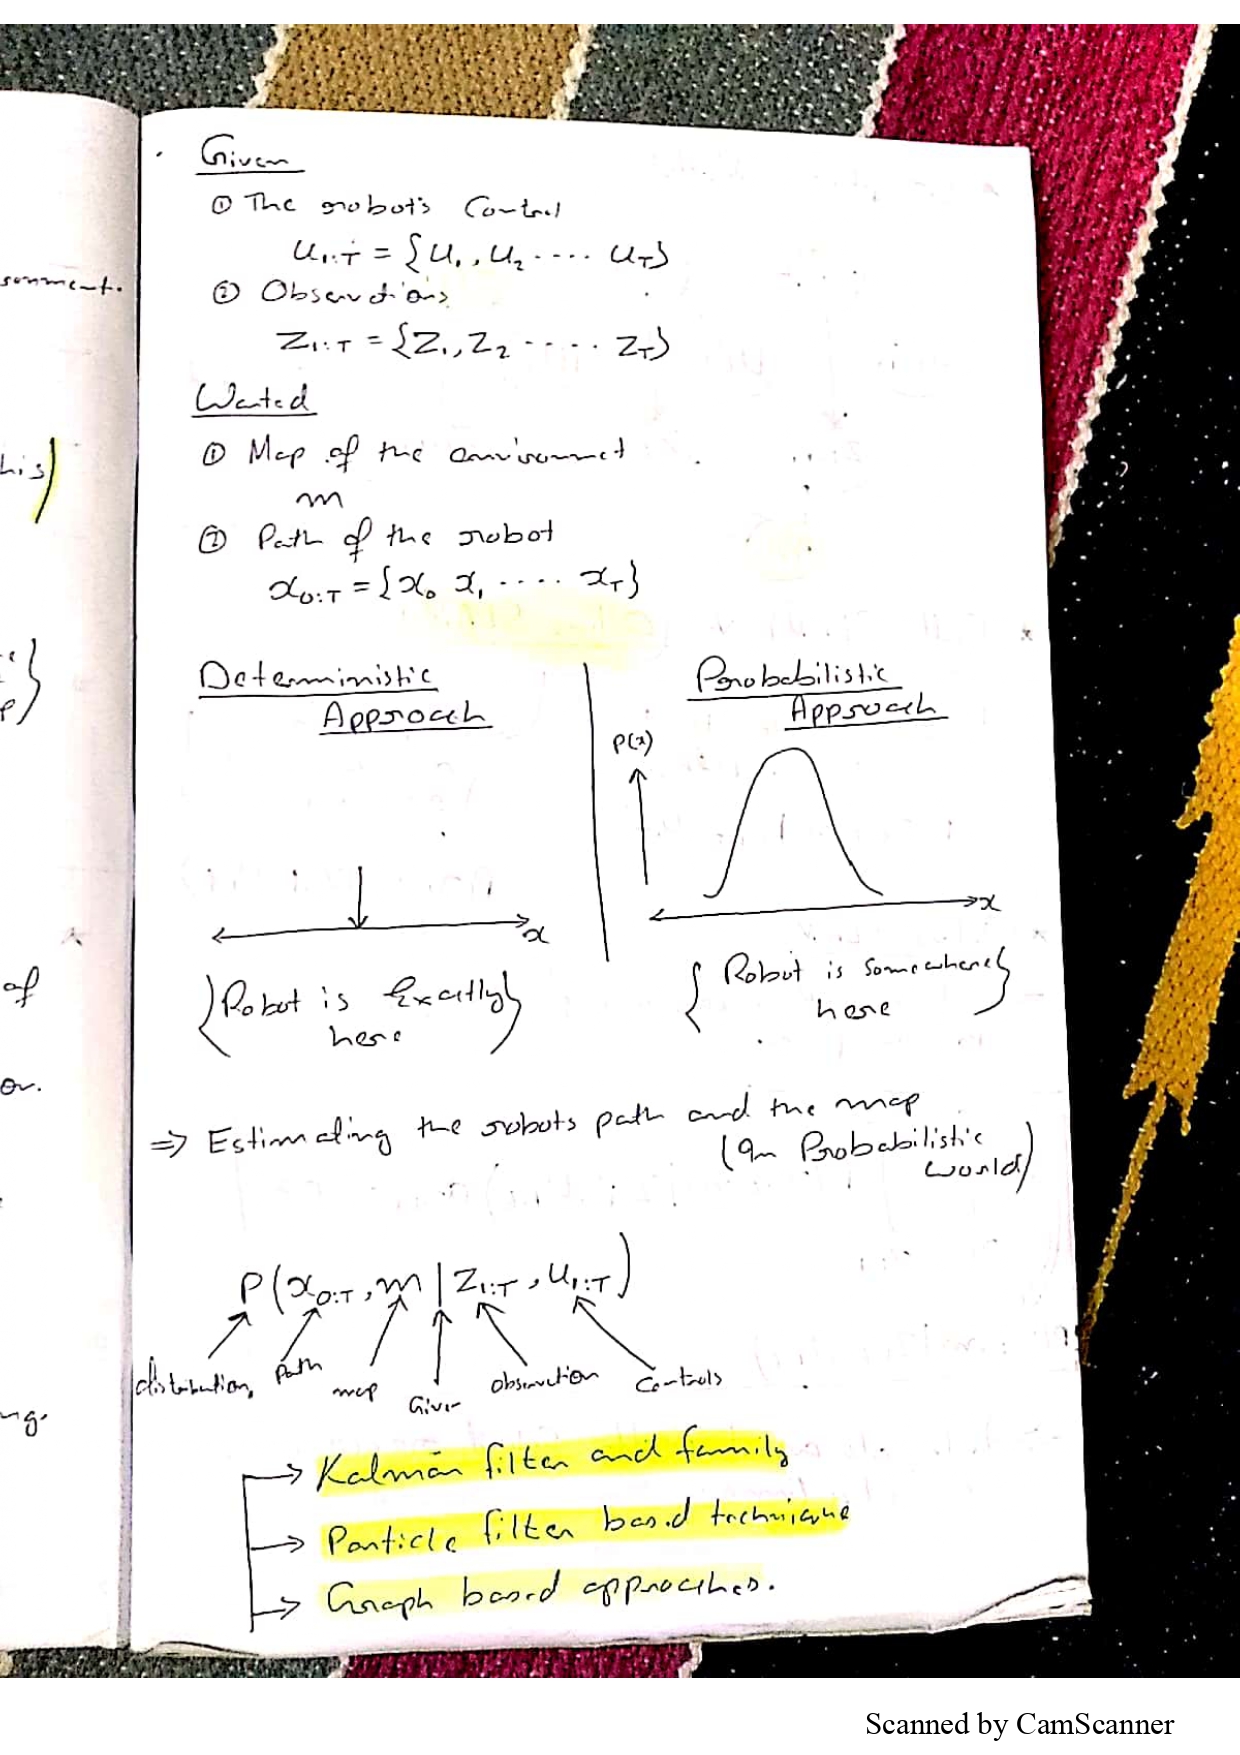 Given
① The robot's Control
u1:T = {u1, u2 .... uT}
② Observations
Z1:T = {Z1, Z2 ..... ZT}
Wanted
① Map of the environmet
m
② Path of the robot
x0:T = {x0 x1 .... xT}
Deterministic
Approach
x
{Robot is Exactly}
here
Probabilistic
Approach
P(x)
x
{Robot is somewhere}
here
⇒ Estimating the robots path and the map
(In Probabilistic
world)
P(x0:T, m | Z1:T, u1:T)
distribution, path map Given observation controls
→ Kalman filter and family
→ Particle filter based technique
→ Graph based approaches.
sonment.
his)
p}
of
or.
ng.
Scanned by CamScanner